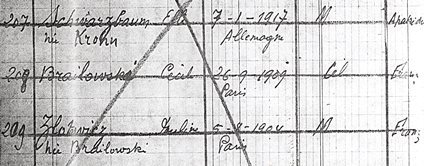 207 Schwarzbaum Elli 7-1-1917 M Apatride
née Krohn Allemagne
208 Brailowski Cécile 26-9-1909 Cel Franç
Paris
209 Zlotwicz Pauline 5-8-1904 M Franç
née Brailowski Paris